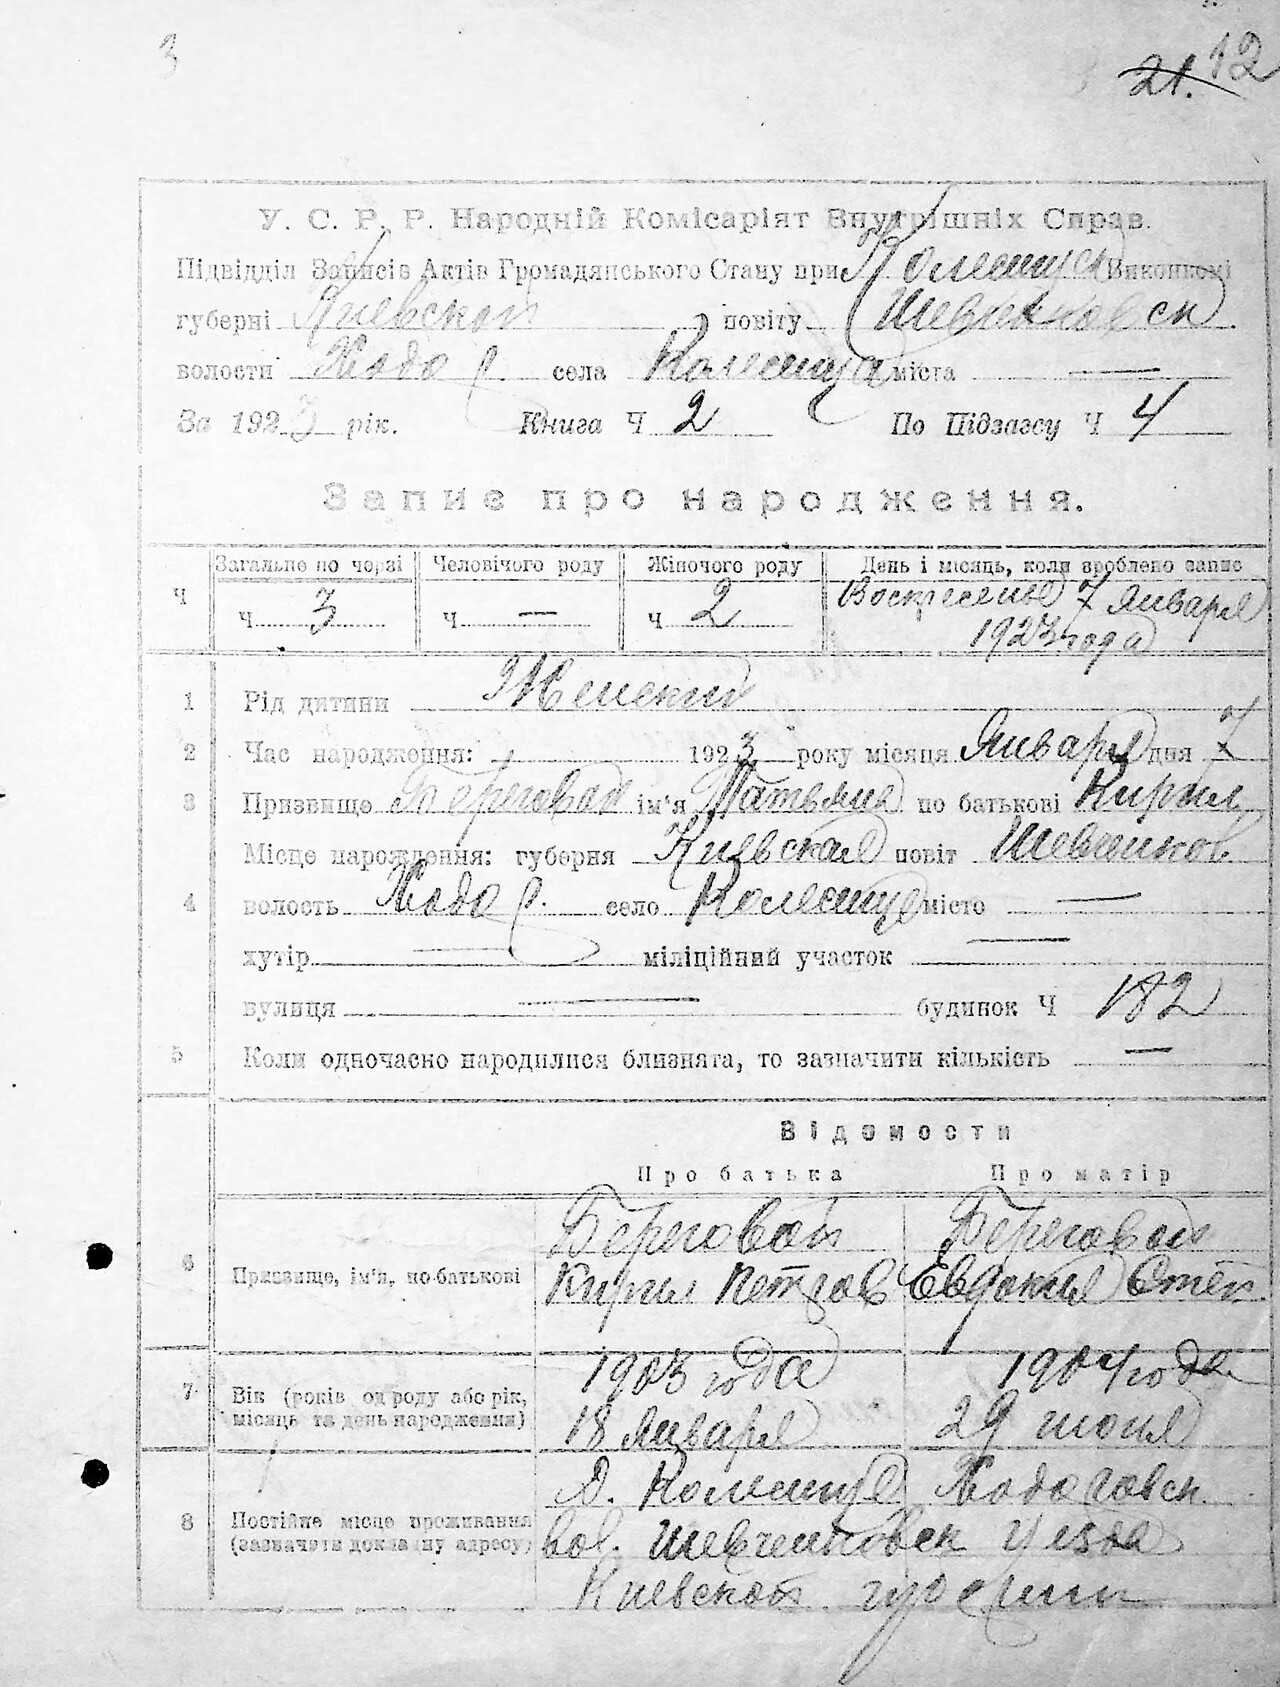 3
21. 12
У. С. Р. Р. Народній Комісаріят Внутрішніх Справ.
Підвідділ Записів Актів Громадянського Стану при Колешнск Виконкомі
губерні Киевской повіту Шевченковск.
волости Ходо р. села Колешня міста —
За 1923 рік. Книга Ч 2 По Підзагсу Ч 4
Запис про народження.
Ч Загально по черзі Человічого роду Жіночого роду День і місяць, коли зроблено запис
Ч 3 Ч — Ч 2 Воскресенье 7 Января
1923 года
1 Рід дитини Женский
2 Час народження: 1923 року місяця Января дня 7
3 Призвище Береговая ім'я Татьяна по батькові Кирил
Місце народження: губерня Киевская повіт Шевченков
4 волость Ходо р. село Колешня місто —
хутір — міліційний участок —
вулиця — будинок Ч 182
5 Коли одночасно народилися близнята, то зазначити кількість —
Відомости
Про батька Про матір
Береговой Береговая
6 Призвище, ім'я, по-батькові Кирил Петров Евдокия Степ.
1903 года 1904 года
7 Вік (років од роду або рік, місяць та день народження) 18 Января 29 июня
Д. Колешня Ходоровск
8 Постійне місце проживання (зазначити докладну адресу) вол. Шевченковск уезда
Киевской губернии